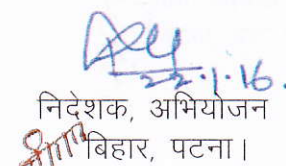 22.1.16.
निदेशक, अभियोजन
बिहार, पटना।